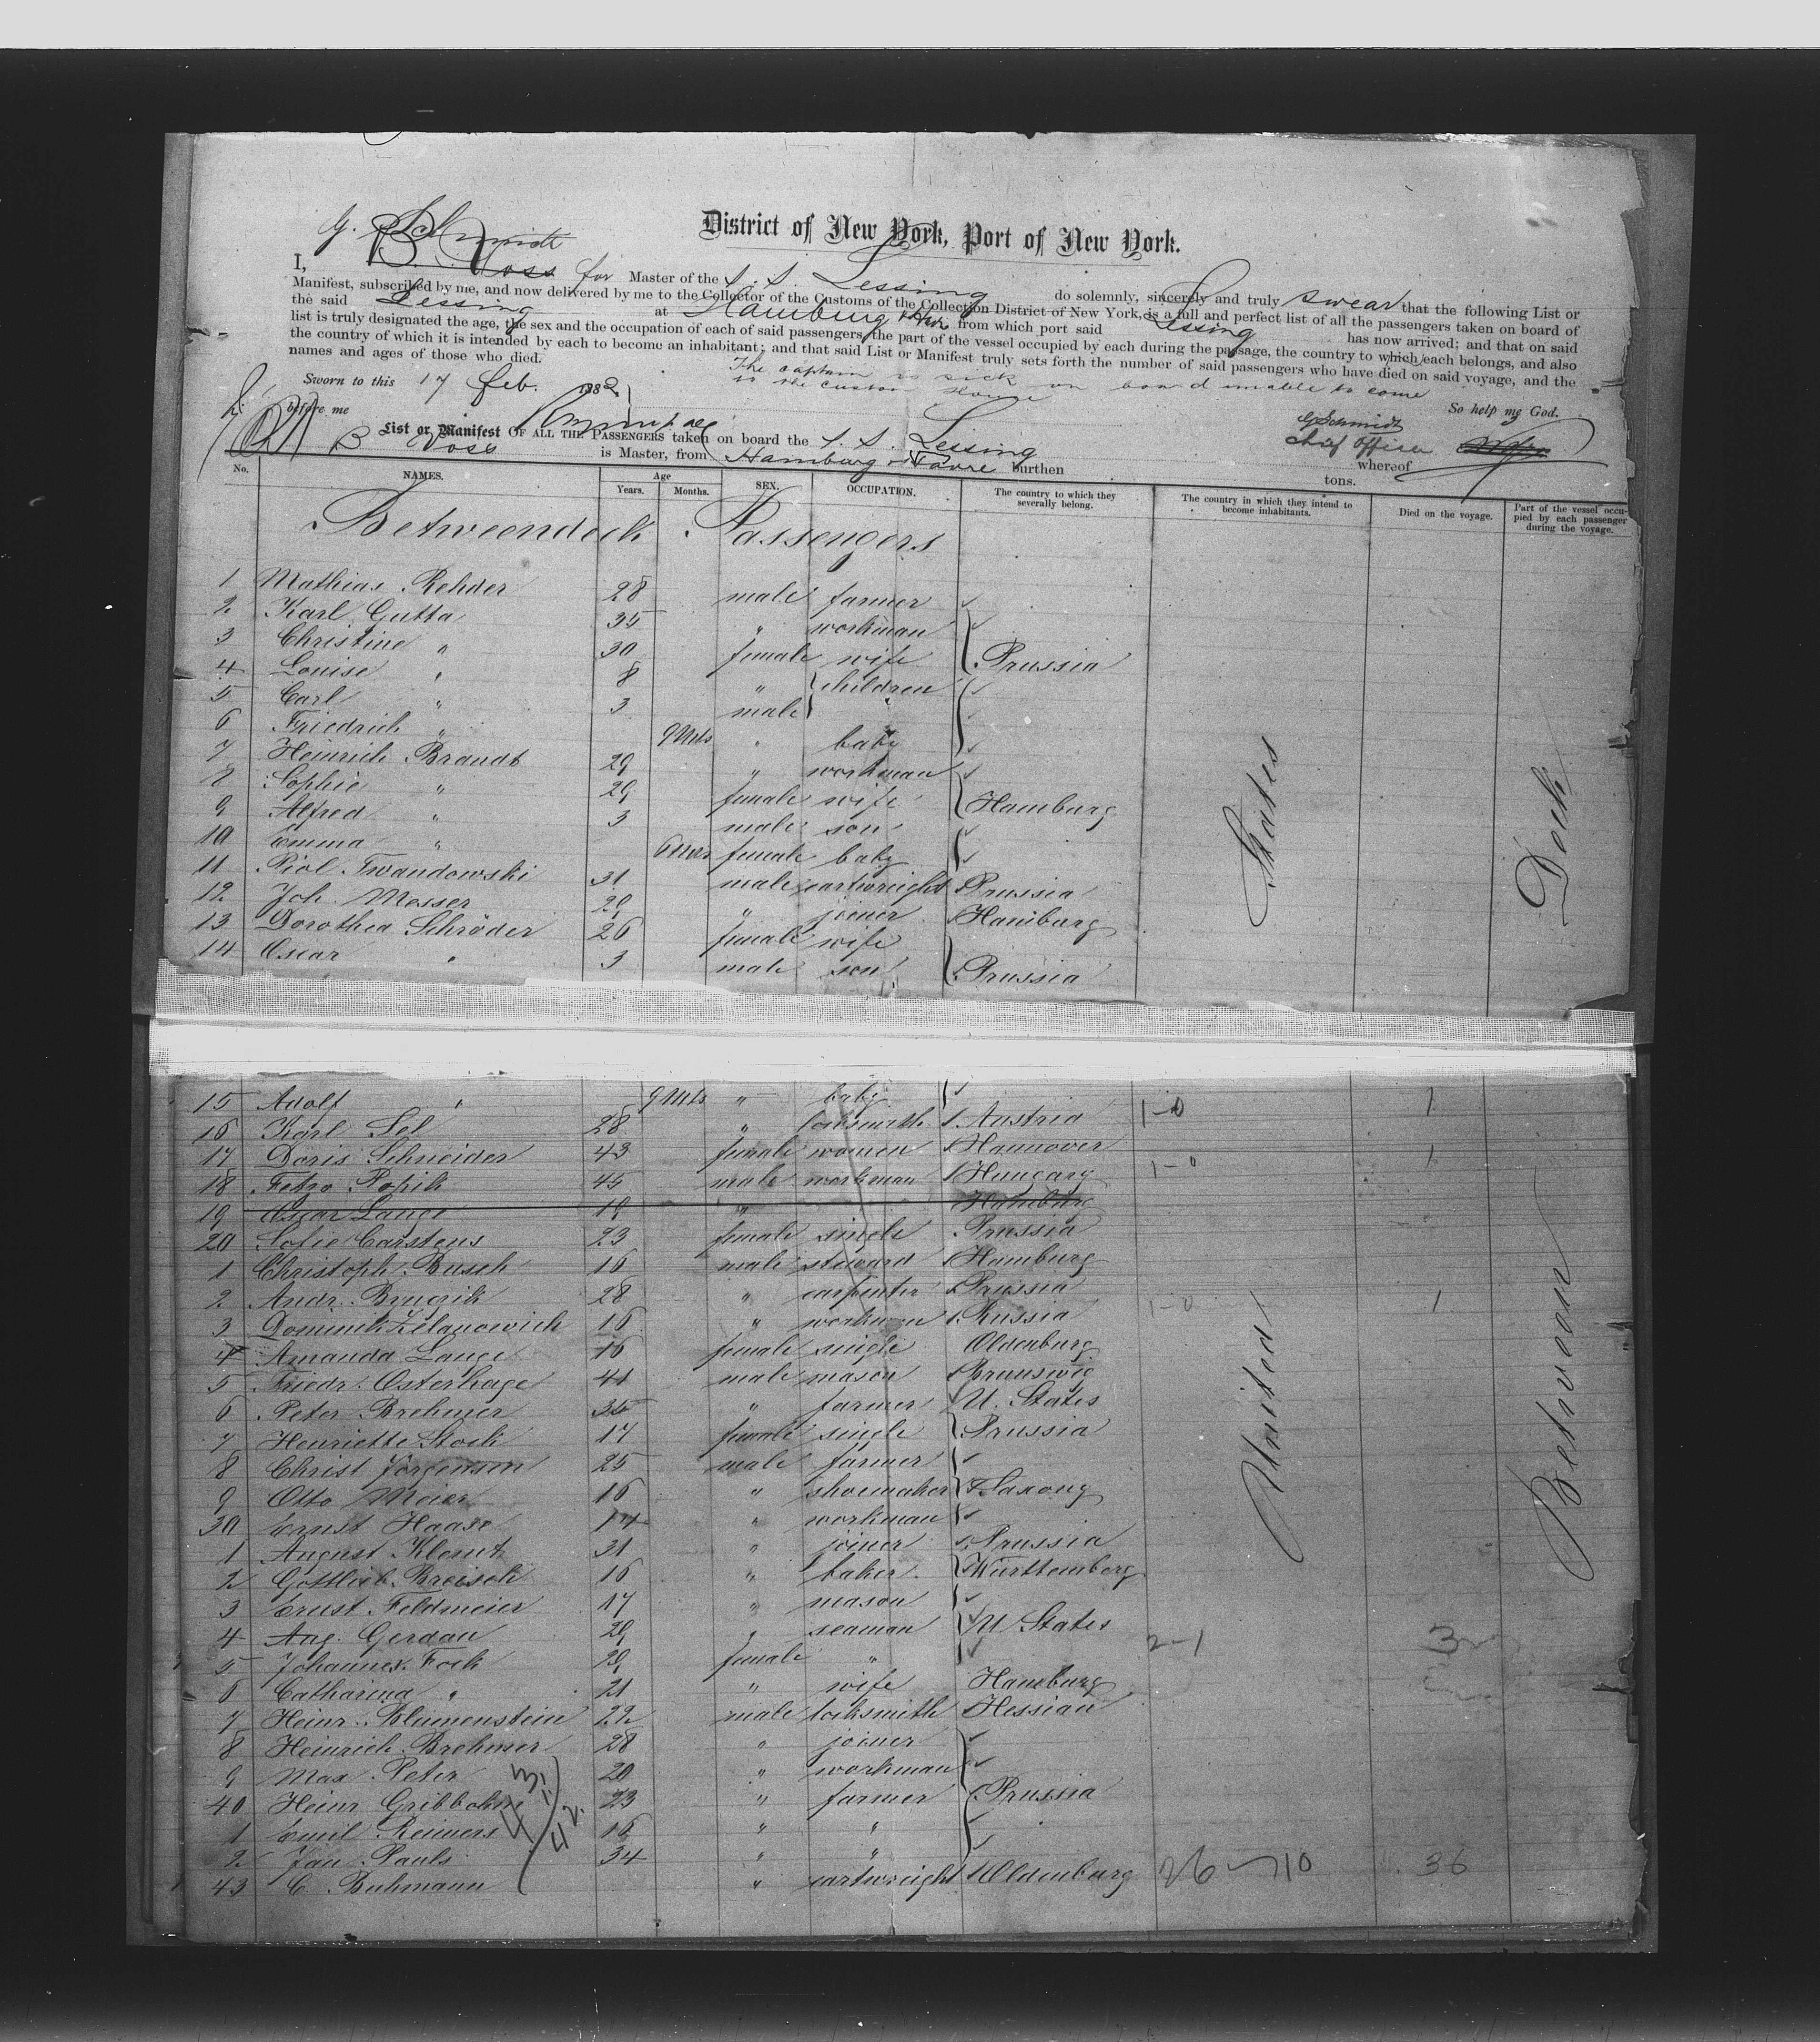 District of New York, Port of New York.
G. Schmidt
I, B. Voss for Master of the S. S. Lessing do solemnly, sincerely and truly swear that the following List or
Manifest, subscribed by me, and now delivered by me to the Collector of the Customs of the Collection District of New York, is a full and perfect list of all the passengers taken on board of
the said Lessing at Hamburg from which port said Lessing has now arrived; and that on said
list is truly designated the age, the sex and the occupation of each of said passengers, the part of the vessel occupied by each during the passage, the country to which each belongs, and also
the country of which it is intended by each to become an inhabitant; and that said List or Manifest truly sets forth the number of said passengers who have died on said voyage, and the
names and ages of those who died.
The captain is sick on board unable to come
to the Custom House
Sworn to this 17 Feb. 1882
So help me God.
before me
G Schmidt
chief officer
List or Manifest OF ALL THE PASSENGERS taken on board the S. S. Lessing whereof
B Voss is Master, from Hamburg Havre burthen tons.
No. NAMES. Age Years. Months. SEX. OCCUPATION. The country to which they severally belong. The country in which they intend to become inhabitants. Died on the voyage. Part of the vessel occupied by each passenger during the voyage.
Betweendeck Passengers
1 Mathias Rehder 28 male farmer
2 Karl Gutta 35 " workman
3 Christine " 30 female wife Prussia
4 Louise " 8 " children
5 Carl " 3 male
6 Friedrich " 9 Mts " baby
7 Heinrich Brandt 29 " workman
8 Sophie " 29 female wife Hamburg
9 Alfred " 3 male son
10 Emma " 6 Mts female baby
11 Piol Twandowski 31 male cartwreight Prussia
12 Joh. Messer 29 " joiner Hamburg
13 Dorothea Schröder 26 female wife
14 Oscar " 3 male son Prussia
15 Adolf " 9 Mts " baby
16 Karl Sel 28 " locksmith Austria 1-0 1
17 Doris Schneider 43 female women Hannover
18 Fetzo Popik 45 male workman Hungary 1-0 1
19 Oscar Lange 19 " Hamburg
20 Sofie Carstens 23 female single Prussia
1 Christoph Busch 16 male steward Hamburg
2 Andr. 28 " carpenter Prussia
3 Dominik Zelanowich 16 " workman Russia 1-0 1
4 Amanda Lange 16 female single Oldenburg
5 Friedr. Osterhage 41 male mason Brunswig
6 Peter Brehmer 35 " farmer U. States
7 Henriette Stock 17 female single Prussia
8 Christ Jörgensen 25 male farmer
9 Otto Meier 16 " shoemaker Saxony
30 Ernst Haase 14 " workman
1 August Klemt 31 " joiner Prussia
2 Gottlieb Breisch 16 " baker Württemberg
3 Ernst Feldmeier 17 " mason
4 Aug. Gerdau 29 " seaman U States 2-1 3
5 Johannes Fock 29 female "
6 Catharina " 21 " wife Hamburg
7 Heinr. Blumenstein 22 male locksmith Hessian
8 Heinrich Brehmer 28 " joiner
9 Max Peter 20 " workman
40 Heinr Gribbohm 23 " farmer Prussia
1 Emil Reimers 16 " "
2 Jan Pauls 34 " "
43 C. Buhmann " cartwreight Oldenburg 26-10 36
42
United States
Between Deck